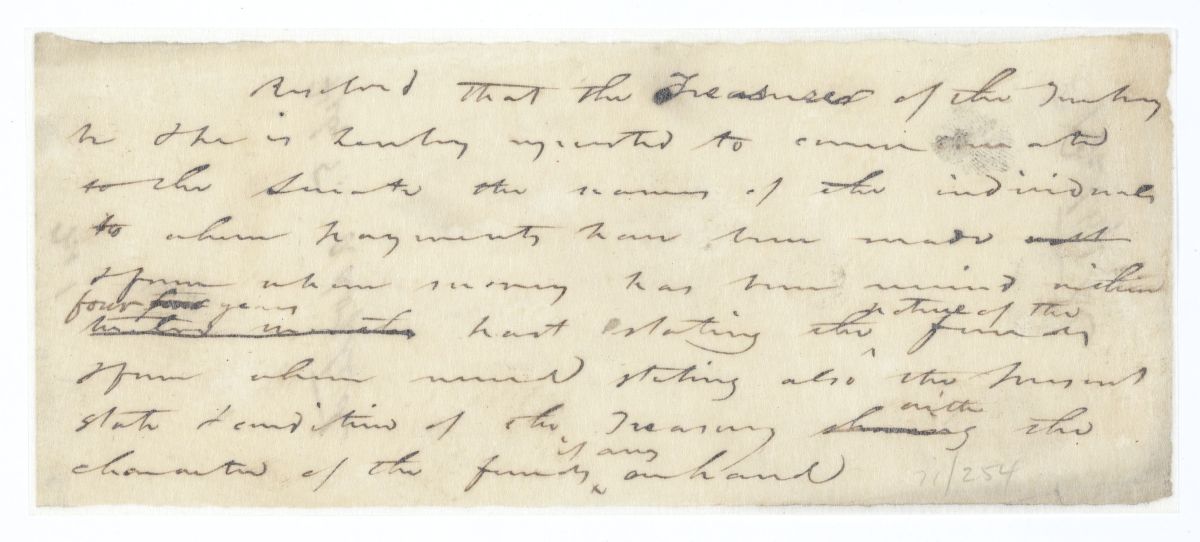 Resolved that the Treasurer of the
be & he is hereby requested to communicate
to the Senate the names of the individuals
to whom payments have been made
& from whom money has been received within
four years
past stating the nature of the funds
& from whom received stating also the present
state & condition of the Treasury with the
character of the funds if any on hand
71/254